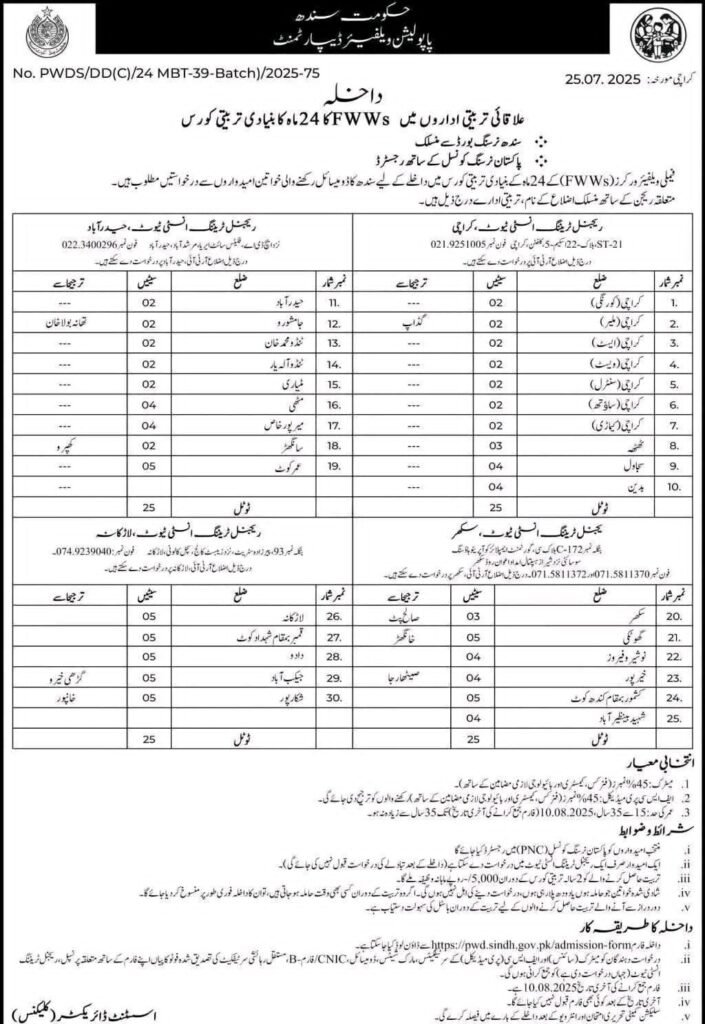 حکومت سندھ
پاپولیشن ویلفیئر ڈیپارٹمنٹ
No. PWDS/DD(C)/24 MBT-39-Batch)/2025-75
کراچی مورخہ: 25.07. 2025
داخلہ
علاقائی تربیتی اداروں میں FWWs کا 24 ماہ کا بنیادی تربیتی کورس
سندھ نرسنگ بورڈ سے منسلک
پاکستان نرسنگ کونسل کے ساتھ رجسٹرڈ
فیملی ویلفیئر ورکرز (FWWs) کے 24 ماہ کے بنیادی تربیتی کورس میں داخلے کے لیے سندھ کا ڈومیسائل رکھنے والی خواتین امیدواروں سے درخواستیں مطلوب ہیں۔
متعلقہ ریجن کے ساتھ منسلک اضلاع کے نام، تربیتی ادارے درج ذیل ہیں۔
ریجنل ٹریننگ انسٹی ٹیوٹ، کراچی
ST-21 بلاک-22 اسکیم-5، کلفٹن، کراچی فون نمبر 021.9251005
درج ذیل اضلاع آر ٹی آئی پر درخواست دے سکتے ہیں۔
نمبر شمار ضلع سیٹیں ترجیحاے
1. کراچی (کورنگی) 02 ---
2. کراچی (ملیر) 02 گڈاپ
3. کراچی (ایسٹ) 02 ---
4. کراچی (ویسٹ) 02 ---
5. کراچی (سنٹرل) 02 ---
6. کراچی (ساؤتھ) 02 ---
7. کراچی (کیماڑی) 02 ---
8. ٹھٹھہ 03 ---
9. سجاول 04 ---
10. بدین 04 ---
ٹوٹل 25
ریجنل ٹریننگ انسٹی ٹیوٹ، حیدرآباد
نزد ایچ ڈی اے، فلیٹس سائٹ ایریا، مرشد آباد، حیدرآباد فون نمبر 022.3400296
درج ذیل اضلاع آر ٹی آئی، حیدرآباد پر درخواست دے سکتے ہیں۔
نمبر شمار ضلع سیٹیں ترجیحاے
11. حیدرآباد 02 ---
12. جامشورو 02 تھانہ بولا خان
13. ٹنڈو محمد خان 02 ---
14. ٹنڈو آلہ یار 02 ---
15. مٹیاری 02 ---
16. مٹھی 04 ---
17. میرپور خاص 04 ---
18. سانگھڑ 02 کھپرو
19. عمرکوٹ 05 ---
---
ٹوٹل 25
ریجنل ٹریننگ انسٹی ٹیوٹ، سکھر
بنگلہ نمبر C-172 بلاک سی، گورنمنٹ ایمپلائز کوآپریٹو ہاؤسنگ
سوسائٹی نزد شیراز ہسپتال امداد اعوان روڈ سکھر
فون نمبر 071.5811370 اور 071.5811372 درج ذیل اضلاع آر ٹی آئی، سکھر پر درخواست دے سکتے ہیں۔
نمبر شمار ضلع سیٹیں ترجیحاے
20. سکھر 03 صالح پٹ
21. گھوٹکی 05 خانگڑھ
22. نوشیروفیروز 04
23. خیرپور 04 صیٹھارجا
24. کشمور بمقام کندھ کوٹ 05
25. شہید بینظیر آباد 04
ٹوٹل 25
ریجنل ٹریننگ انسٹی ٹیوٹ، لاڑکانہ
بنگلہ نمبر 93، پیرزادہ سٹریٹ، نزد زیبسٹ کالج، سچل کالونی، لاڑکانہ فون نمبر: 074.9239040
درج ذیل اضلاع آر ٹی آئی، لاڑکانہ پر درخواست دے سکتے ہیں۔
نمبر شمار ضلع سیٹیں ترجیحاے
26. لاڑکانہ 05
27. قمبر بمقام شہدادکوٹ 05
28. دادو 05
29. جیکب آباد 05 گڑھی خیرو
30. شکارپور 05 خانپور
ٹوٹل 25
انتخابی معیار
1. میٹرک: 45% نمبرز (فزکس، کیمسٹری اور بائیولوجی لازمی مضامین کے ساتھ)۔
2. ایف ایس سی پری میڈیکل: 45% نمبرز (فزکس، کیمسٹری اور بائیولوجی لازمی مضامین کے ساتھ) رکھنے والوں کو ترجیح دی جائے گی۔
3. عمر کی حد: 15 سے 35 سال، 10.08.2025 (فارم جمع کرانے کی آخری تاریخ) تک 35 سال سے زیادہ نہ ہو۔
شرائط و ضوابط
i. منتخب امیدواروں کو پاکستان نرسنگ کونسل (PNC) میں رجسٹر کیا جائے گا
ii. ایک امیدوار صرف ایک ریجنل ٹریننگ انسٹی ٹیوٹ میں درخواست دے سکتا ہے (داخلے کے بعد تبادلے کی درخواست قبول نہیں کی جائے گی)۔
iii. تربیت حاصل کرنے والے کو 2 سالہ تربیتی کورس کے دوران 5,000/- روپے ماہانہ وظیفہ ملے گا۔
iv. شادی شدہ خواتین جو حاملہ ہوں یا دودھ پلا رہی ہوں، درخواست دینے کی اہل نہیں ہوں گی۔ اگر وہ تربیت کے دوران کسی بھی وقت حاملہ ہو جاتی ہیں، تو ان کا داخلہ فوری طور پر منسوخ کر دیا جائے گا۔
v. دور دراز سے آنے والے تربیت حاصل کرنے والوں کے لیے تربیت کے دوران ہاسٹل کی سہولت دستیاب ہے۔
داخلہ کا طریقہ کار
i. داخلہ فارم https://pwd.sindh.gov.pk/admission-form سے ڈاؤن لوڈ کیا جاسکتا ہے۔
ii. درخواست دہندگان کو میٹرک (سائنس) اور ایف ایس سی (پری میڈیکل) کے سرٹیفکیٹس، مارکس شیٹس، ڈومیسائل، CNIC/فارم-B، مستقل رہائشی سرٹیفکیٹ کی تصدیق شدہ فوٹو کاپیاں اپنے فارم کے ساتھ متعلقہ پرنسپل، ریجنل ٹریننگ
انسٹی ٹیوٹ (جہاں درخواست دی ہے) کو جمع کرانی ہوں گی۔
iii. فارم جمع کرانے کی آخری تاریخ 10.08.2025 ہے۔
iv. آخری تاریخ کے بعد کوئی بھی فارم قبول نہیں کیا جائے گا۔
v. سلیکشن کمیٹی تحریری امتحان اور انٹرویو کے بعد داخلے کے بارے میں فیصلہ کرے گی۔
اسسٹنٹ ڈائریکٹر (کلینکس)